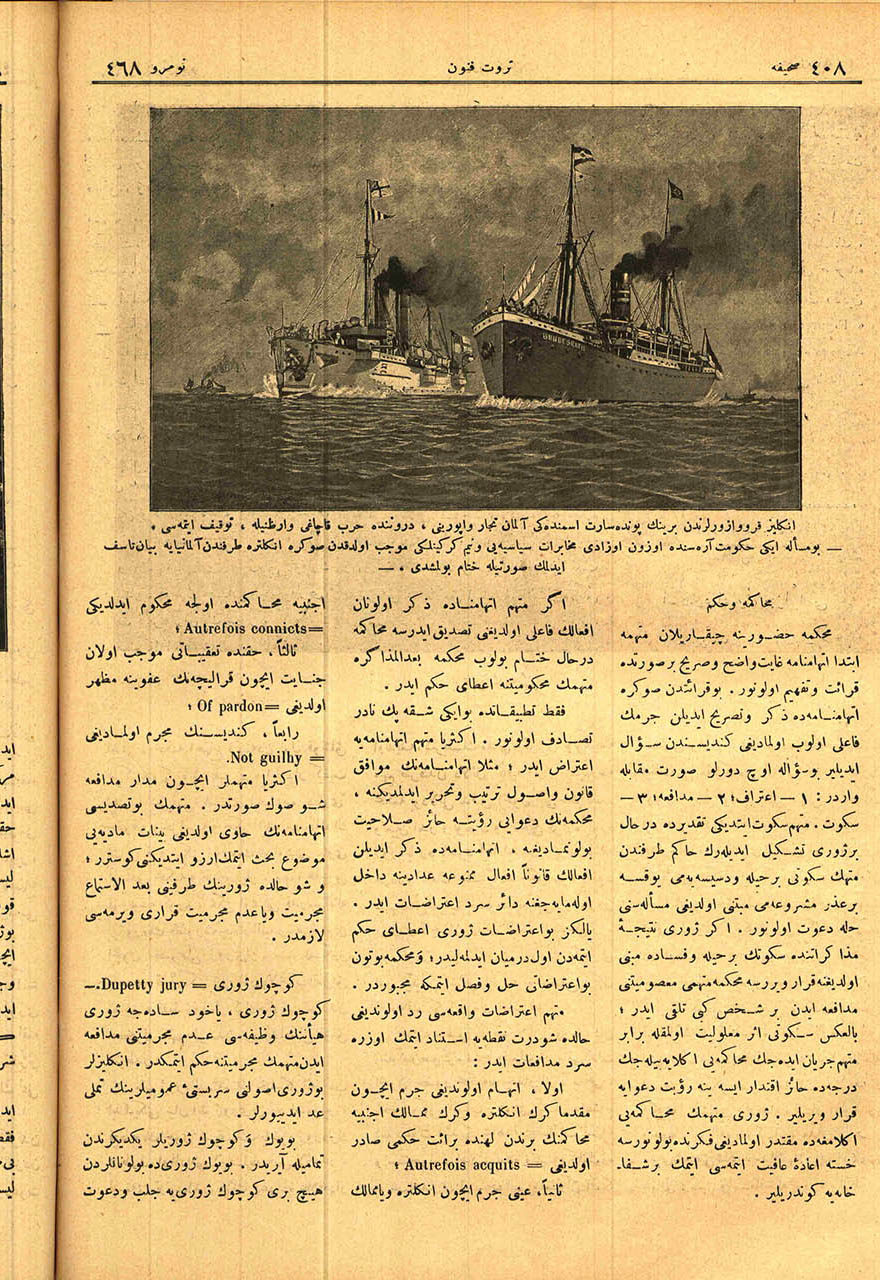 ٤٠٨ صحیفه
ثروت فنون
نومرو ٤٦٨
BUNDESRATH
انكلیز قرووازورلرندن برینك بوندەسارت اسمندەكی آلمان تجار واپورینی ، دروننده حرب قاچاغی وارظنیله ، توقیف ایتمەسی .
— بومسأله ایكی حكومت آرەسنده اوزون اوزادی مخابرات سیاسیەیی ونیم كركینلكی موجب اولدقدن صوكره انكلتره طرفندن آلمانیایه بیان تأسف
ایدلمك صورتیله ختام بولمشدی . —
محاكمه وحكم
محكمه حضورینه چیقاریلان متهمه
ابتدا اتهامنامه غایت واضح وصریح برصورتده
قرائت وتفهیم اولونور . بوقرائتدن صوكره
اتهامنامەده ذكر وتصریح ایدیلن جرمك
فاعلی اولوب اولمادیغی كندیسندن سؤال
ایدیلیر بوسؤاله اوچ دورلو صورت مقابله
واردر : ١ — اعتراف؛ ٢ — مدافعه؛ ٣ —
سكوت . متهم سكوت ایتدیكی تقدیرده درحال
برژوری تشكیل ایدیلەرك حاكم طرفندن
متهمك سكوتی برحیله ودسیسەیەمی یوقسه
برعذر مشروعەمی مبتنی اولدیغی مسألەسنی
حله دعوت اولونور . اكر ژوری نتیجۀ
مذاكراتنده سكوتك برحیله وفساده مبنی
اولدیغنه قرار ویررسه محكمه متهمی معصومیتنی
مدافعه ایدن بر شخص كبی تلقی ایدر ؛
بالعكس سكوتی اثر معلولیت اولمقله برابر
متهم جریان ایدەجك محاكمەیی اكلایەبیلەجك
درجەده حائز اقتدار ایسه ینه رؤیت دعوایه
قرار ویریلیر . ژوری متهمك محاكمەیی
اكلامغەده مقتدر اولمادیغی فكرنده بولونورسه
خسته اعادۀ عافیت ایتمەسی ایتمك برشفا-
خانەیه كوندریلیر .
اكر متهم اتهامنامەده ذكر اولونان
افعالك فاعلی اولدیغنی تصدیق ایدرسه محاكمه
درحال ختام بولوب محكمه بعدالمذاكره
متهمك محكومیتنه اعطای حكم ایدر .
فقط تطبیقاتده بوایكی شقه پك نادر
تصادف اولونور . اكثریا متهم اتهامنامەیه
اعتراض ایدر ؛ مثلا اتهامنامەنك موافق
قانون واصول ترتیب وتحریر ایدلمدیكنه ،
محكمەنك دعوایی رؤیته حائز صلاحیت
بولونمادیغنه ، اتهامنامەده ذكر ایدیلن
افعالك قانوناً افعال ممنوعه عدادینه داخل
اولەمایەجغنه دائر سرد اعتراضات ایدر .
یالكز بواعتراضات ژوری اعطای حكم
ایتمەدن اول درمیان ایدلمەلیدر؛ ومحكمه بوتون
بواعتراضاتی حل وفصل ایتمكه مجبوردر .
متهم اعتراضات واقعەسی رد اولوندیغی
حالده شو درت نقطەیه استناد ایتمك اوزره
سرد مدافعات ایدر :
اولا ، اتهام اولوندیغی جرم ایچون
مقدما كرك انكلتره وكرك ممالك اجنبیه
محاكمنك برندن لهنده برائت حكمی صادر
اولدیغی = Autrefois acquits ؛
ثانیاً ، عینی جرم ایچون انكلتره ویاممالك
اجنبیه محاكمنده اولجه محكوم ایدلدیكی
=Autrefois connicts ؛
ثالثاً ، حقنده تعقیباتی موجب اولان
جنایت ایچون قرالیچەنك عفوینه مظهر
اولدیغی =Of pardon ؛
رابعاً ، كندیسنك مجرم اولمادیغی
= Not guilhy.
اكثریا متهملر ایچون مدار مدافعه
شو صوك صورتدر . متهمك بوتصدیسی
اتهامنامەنك حاوی اولدیغی بینات مادیەیی
موضوع بحث ایتمك آرزو ایتدیكنی كوسترر ؛
و شو حالده ژورینك طرفینی بعد الاستماع
مجرمیت ویاعدم مجرمیت قراری ویرمەسی
لازمدر .
كوچوك ژوری = Dupetty jury.—
كوچوك ژوری ، یاخود سادەجه ژوری
هیأتنك وظیفەسی عدم مجرمیتنی مدافعه
ایدن متهمك مجرمیتنه حكم ایتمكدر . انكلیزلر
بوژوری اصولنی سربستئ عمومیلرینك تملی
عد ایدییورلر .
بویوك وكوچوك ژوریلر یكدیكرندن
تمامیله آریدر . بویوك ژوریده بولونانلردن
هیچ بری كوچوك ژورییه جلب ودعوت